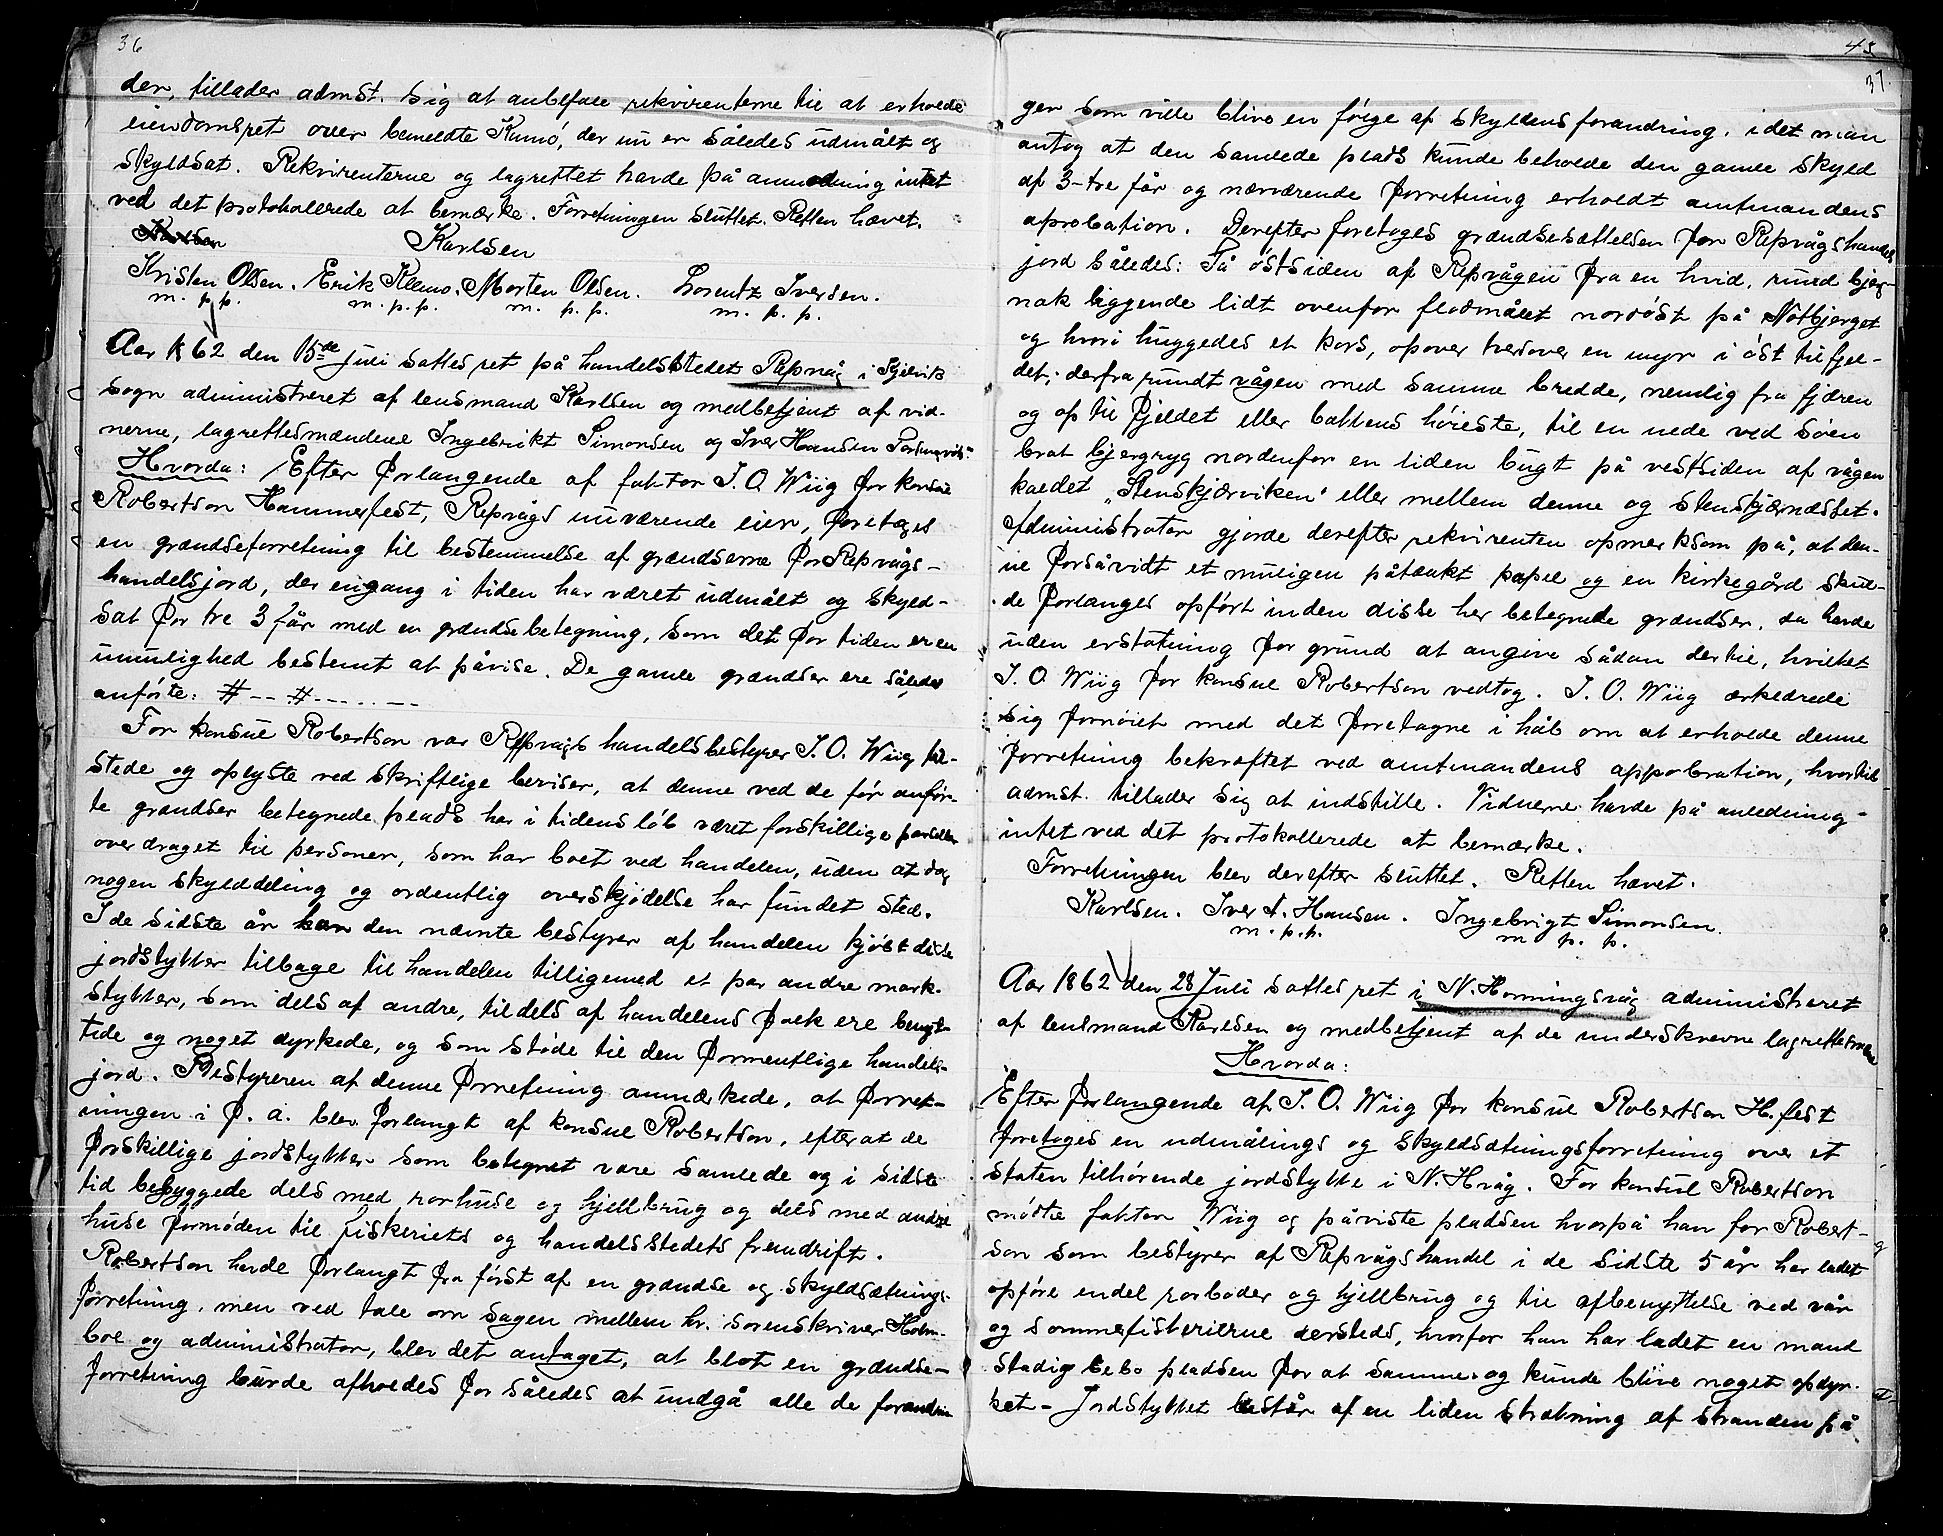 36
der, tillader admst. sig at anbefale rekvirenterne til at erholde
eiendomsret over bemeldte Kamö, der nu er således udmålt og
skyldsat. Rekvirenterne og lagrettet havde på anmodning intet
ved det protokollerede at bemærke. Forretningen sluttet. Retten hævet.
Karlsen
Kristen Olsen. Erik Klemo. Morten Olsen. Lorentz Iversen.
m. p. p. m. p. p. m. p. p. m. p. p.
Aar 1862 den 15de juli sattes ret på handelsstedet Repvåg i Kjelvik
sogn administreret af lensmand Karlsen og medbetjent af vid-
nerne, lagrettesmændene Ingebrikt Simonsen og Iver Hansen
Hvorda: Efter forlangende af faktor I. O. Wiig for konsul
Robertson Hammerfest, Repvågs nuværende eier, foretoges
en grændseforretning til bestemmelse af grændserne for Repvågs-
handelsjord, der engang i tiden har været udmålt og skyld-
sat for tre 3 får med en grændsebetegning, som det for tiden er en
umulighed bestemt at påvise. De gamle grændser ere således
anførte: # -- # -------
For konsul Robertson var Repvågs handelsbestyrer I. O. Wiig til-
stede og oplyste ved skriftlige beviser, at denne ved de før anfør-
te grændser betegnede plads har i tidens løb været forskillige parseller
overdraget til personer, som har boet ved handelen, uden at dog
nogen skylddeling og ordentlig overskjødelse har fundet sted.
I de sidste år har den nævnte bestyrer af handelen kjøbt disse
jordstykker tilbage til handelen tilligemed et par andre mark-
stykker, som dels af andre, tildels af handelens folk ere benyt-
tede og noget dyrkede, og som støde til den formentlige handels-
jord. Bestyreren af denne forretning anmærkede, at forret-
ningen i f. a. blev forlangt af konsul Robertson, efter at de
forskillige jordstykker som betegnet vare samlede og i sidste
tid bebyggede dels med rorhuse og hjellbrug og dels med andre
huse formøden til fiskeriets og handelsstedets fremdrift.
Robertson havde forlangt fra først af en grændse og skyldsætnings-
forretning, men ved tale om sagen mellem hr. sorenskriver Holm-
boe og administrator, blev det antaget, at blot en grændse-
forretning burde afholdes for således at undgå alle de forandrin
45
37
ger som ville blive en følge af skyldens forandring, idet man
antog at den samlede plads kunde beholde den gamle skyld
af 3-tre får og nærværende forretning erholdt amtmandens
aprobation. Derefter foretoges grændsesættelsen for Repvågs handels
jord således: På østsiden af Repvågen fra en hvid, rund bjerg-
nak liggende lidt ovenfor flodmålet nordøst på Nótbjerget
og hvori huggedes et kors, opover tversover en myr i øst til fjel-
det; derfra rundt vågen med samme bredde, nemlig fra fjæren
og op til fjeldet eller bakkens høieste, til en nede ved søen
brat bjergryg nordenfor en liden bugt på vestsiden af vågen
kaldet „Stenskjærviken" eller mellem denne og stenskjærnæsset.
Administrator gjorde derefter rekvirenten opmerksom på, at den-
ne forsåvidt et muligen påtænkt kapel og en kirkegård skul-
de forlanges opført inden disse her betegnede grændser, da havde
uden erstatning for grund at angive sådan dertil, hvilket
I. O. Wiig for konsul Robertson vedtog. I. O. Wiig erklærede
sig fornøiet med det foretagne i håb om at erholde denne
forretning bekræftet ved amtmandens approbation, hvortil
admst. tillader sig at indstille. Vidnerne havde på anledning
intet ved det protokollerede at bemærke.
Forretningen blev derefter sluttet. Retten hævet.
Karlsen. Iver A. Hansen. Ingebrigt Simonsen.
m. p. p. m p. p.
Aar 1862 den 28 Juli sattes ret i N. Honningsvåg administreret
af lensmand Karlsen og medbetjent af de underskrevne lagrettesmænd
Hvorda:
Efter forlangende af I. O. Wiig for konsul Robertson H.fest
foretoges en udmålings og skyldsætningsforretning over et
staten tilhørende jordstykke i N. Hvåg. For konsul Robertson
mødte faktor Wiig og påviste pladsen hvorpå han for Robert-
son som bestyrer af Repvågs handel i de sidste 5 år har ladet
opføre endel rorboder og hjellbrug og til afbenyttelse ved vår
og sommerfiskerierne dersteds, hvorfor han har ladet en mand
stadig bebo pladsen for at samme og kunde blive noget opdyr-
ket - Jordstykket består af en liden strækning af stranden på